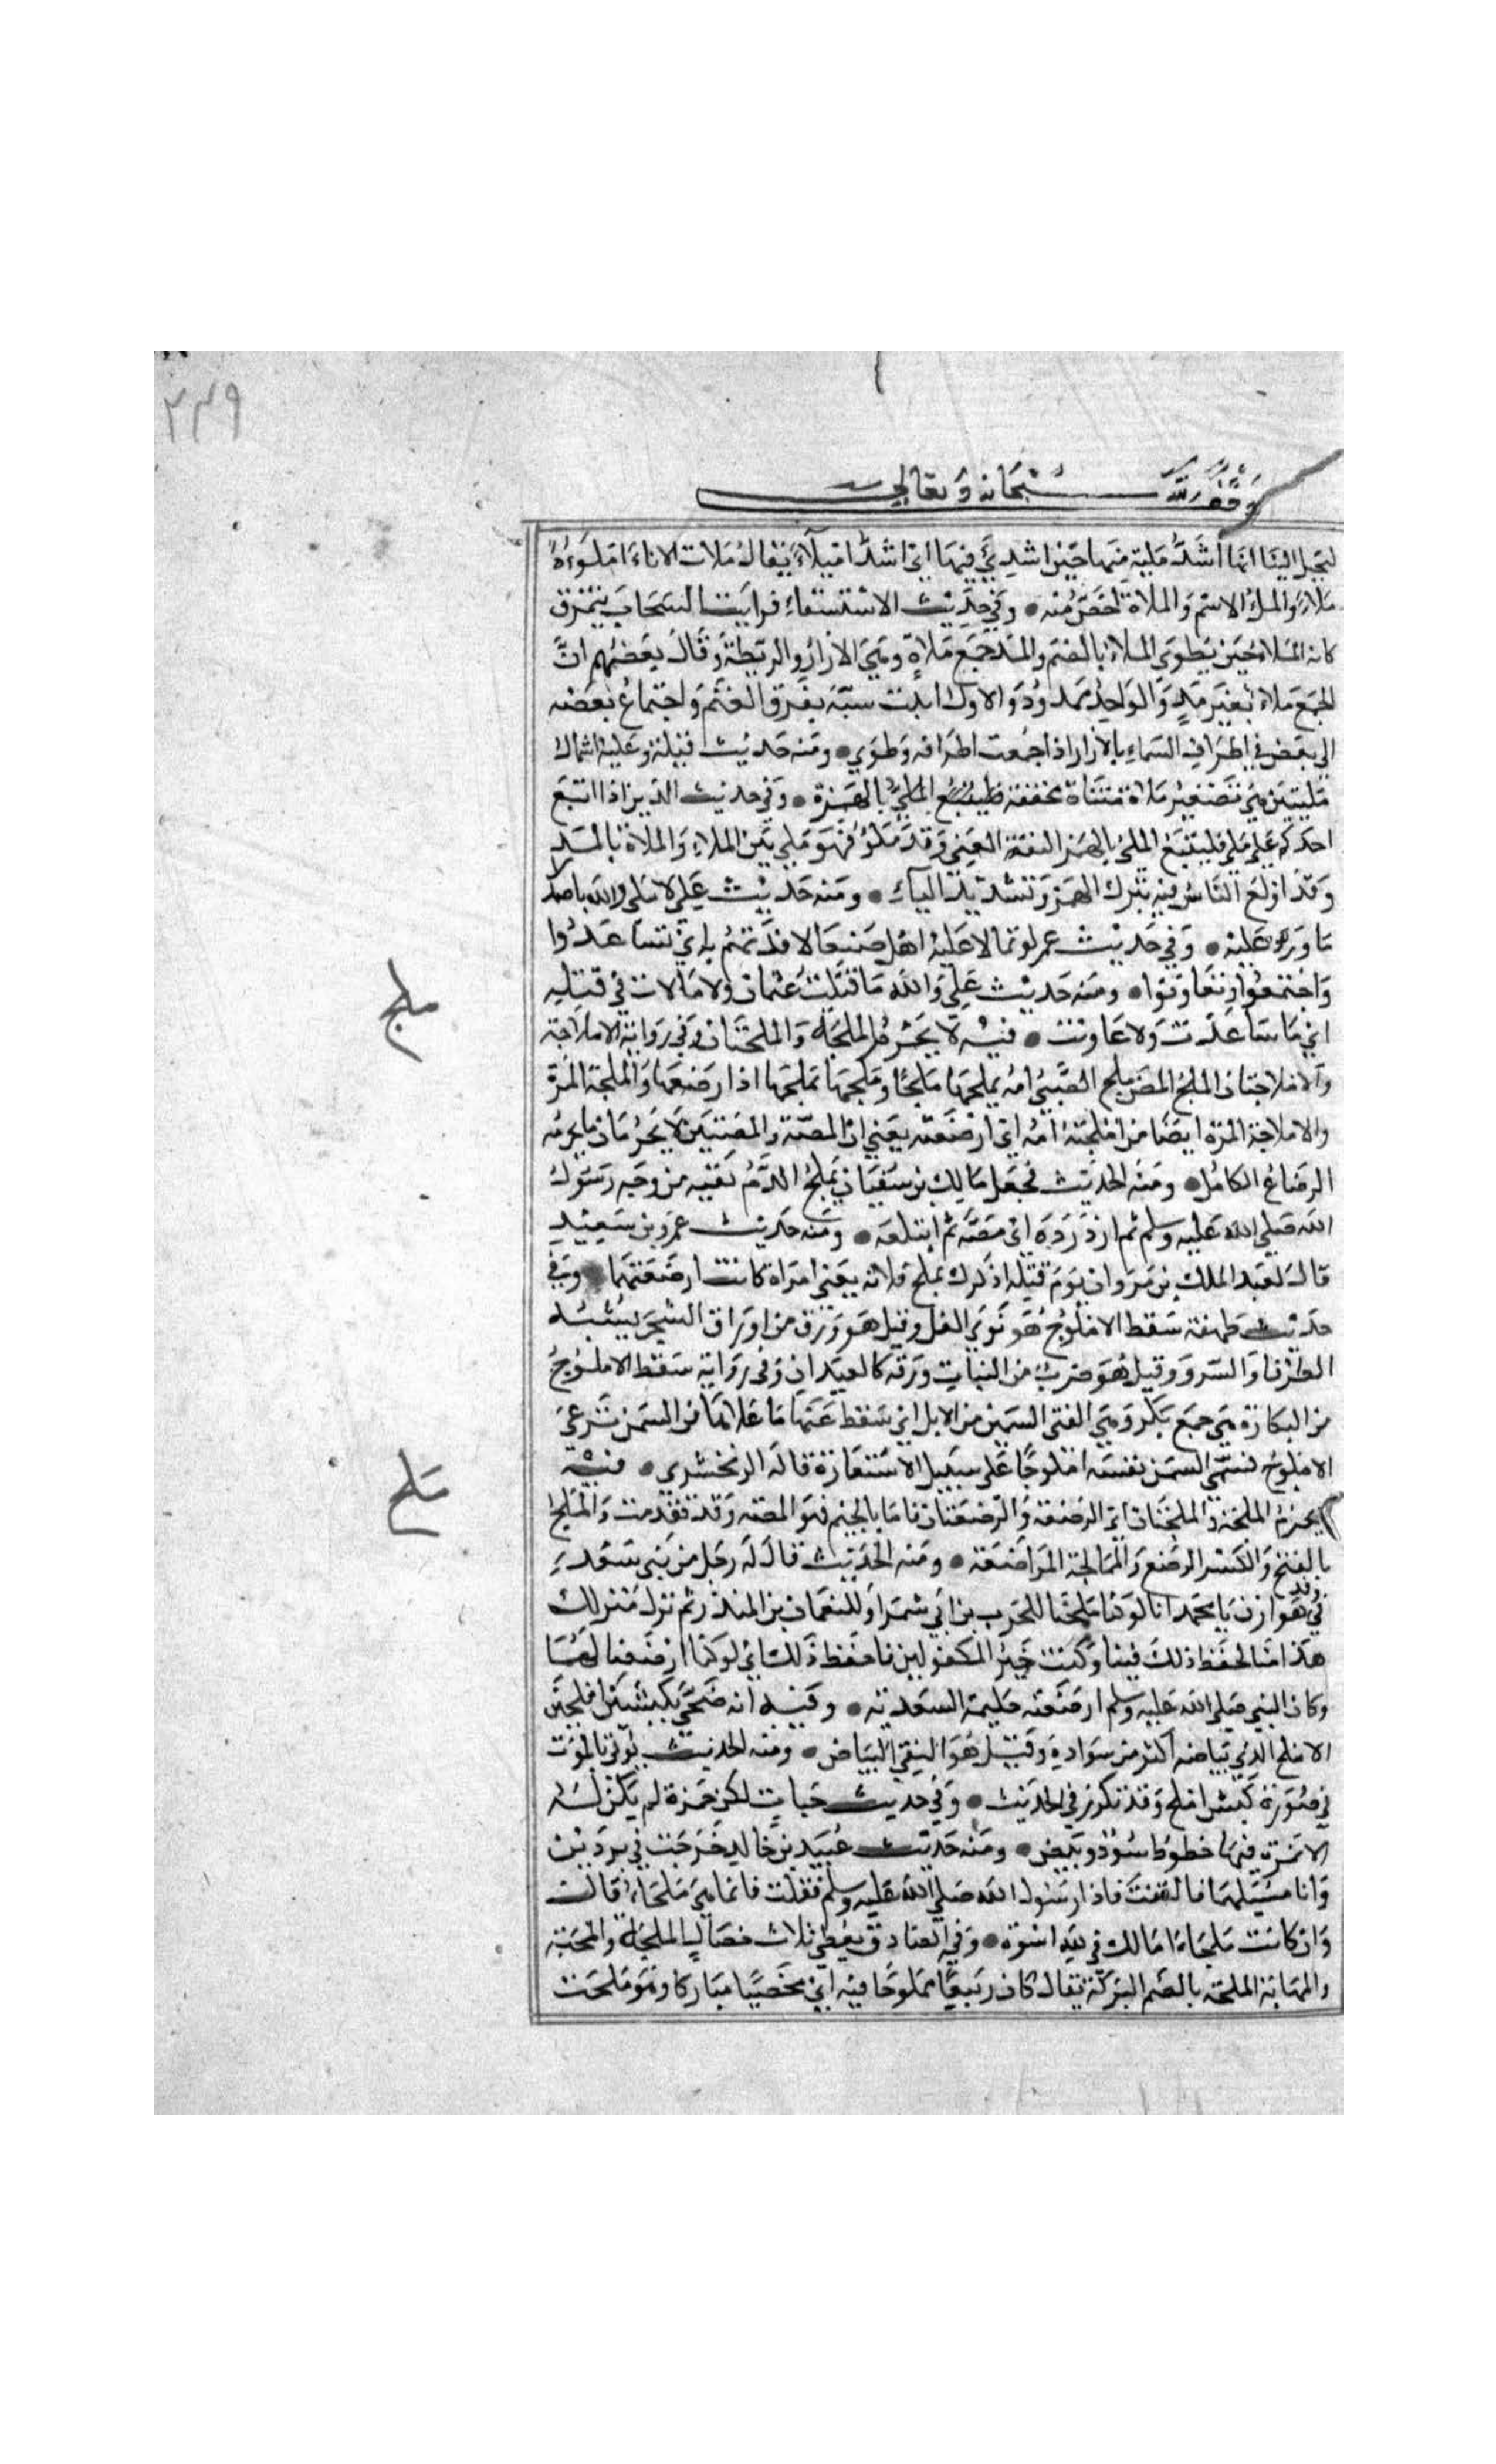 ٢٤٩
وقف لله سبحانه وتعالى
ليخيل الينا انها اشد ملية منها حين ابتدئ فيها اي اشد امتلاء يقال ملات الاناء املؤه
ملاء والملء الاسم والملاة اخص منه ● وفي حديث الاستسقاء فرايت السحاب يتمزق
كانه الملاء حين يطوى الملاء بالضم والمد جمع ملاة وهي الازار والريطة وقال بعضهم ان
الجمع ملاء بغير مد والواحد ممدود والاول اثبت شبه تفرق الغيم واجتماع بعضه
الى بعض في اطراف السماء بالازار اذا جمعت اطرافه وطوي ● ومنه حديث قيلة وعليه اسمال
مليتين هي تصغير ملاة مثناة مخففة الهمزة ● وفي حديث الدين اذا اتبع
احدكم على ملي فليتبع الملئ بالهمز الثقة الغني وقد ملؤ فهو ملي بين الملاء والملاة بالمد
وقد اولع الناس فيه بترك الهمز وتشديد الياء ● ومنه حديث علي لا ملي والله باصدار
ما ورد عليه ● وفي حديث عمر لو تمالا عليه اهل صنعا لاقدتهم به اي تساعدوا
واجتمعوا وتعاونوا ● ومنه حديث علي والله ما قتلت عثمان ولا مالات في قتله
اي ما ساعدت ولا عاونت ● فيه لا تحرم الملجة والملجتان وفي رواية الاملاجة
والاملاجتان الملج المص ملج الصبي امه يملجها ملجا وملجها يملجها اذا رضعها والملجة المرة
والاملاجة المرة ايضا من املجته امه اي ارضعته يعني ان المصة والمصتين لا يحرمان ما يحرمه
الرضاع الكامل ● ومنه الحديث فجعل مالك بن سنان يملج الدم بفيه من وجه رسول
الله صلى الله عليه وسلم ثم ازدرده اي مصه ثم ابتلعه ● ومنه حديث عمرو بن سعيد
قال لعبد الملك بن مروان يوم قتله اذكرك ملج فلانة يعني امراة كانت ارضعتهما ● وفي
حديث طهفة سقط الاملوج هو نوى المقل وقيل هو ورق من اوراق الشجر يشبه
الطرفا والسرو وقيل هو ضرب من النبات ورقه كالعيدان وفي رواية سقط الاملوج
من البكارة هي جمع بكر وهي الفتي السمين من الابل اي سقط عنها ما علاها من السمن برعي
الاملوج فسمي السمن نفسه املوجا على سبيل الاستعارة قاله الزمخشري ● فيه
لا يحرم الملحة والملحتان اي الرضعة والرضعتان فاما بالجيم فهو المصة وقد تقدمت والملح
بالفتح والكسر الرضع والممالحة المراضعة ● ومنه الحديث قال له رجل من بني سعد
في وفد هوازن يا محمد انا لو كنا ملحنا للحرث بن ابي شمر او للنعمان بن المنذر ثم نزل منزلك
هذا منا لحفظ ذلك فينا وكنت خير المكفولين فاحفظ ذلك اي لو كنا ارضعنا لهما
وكان النبي صلى الله عليه وسلم ارضعته حليمة السعدية ● وفيه انه ضحى بكبشين املحين
الاملح الذي بياضه اكثر من سواده وقيل هو النقي البياض ● ومنه الحديث يؤتى بالموت
في صورة كبش املح وقد تكرر في الحديث ● وفي حديث خباب لكن حمزة لم يكن له
الا نمرة فيها خطوط سود وبيض ● ومنه حديث عبيد بن خالد خرجت في بردين
وانا مسبلهما فالتفت فاذا رسول الله صلى الله عليه وسلم فقلت فانما هي ملحاء قال
وان كانت ملحاء امالك في اسوة ● وفي الصادق يعطي ثلاث خصال الملحة والمحبة
والمهابة الملحة بالضم البركة يقال كان ربيعنا مملوحا فيه اي مخصبا مباركا وهو ملحت
ملج
ملح